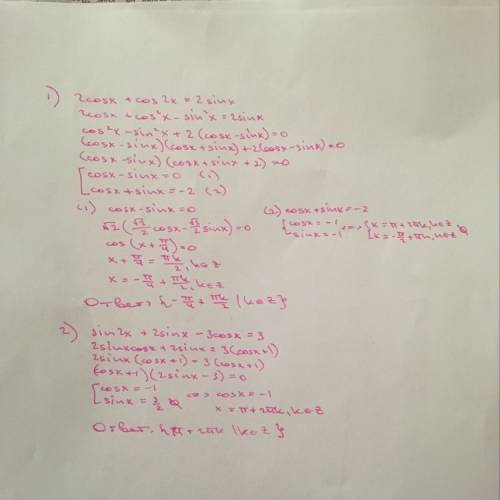 1) 2cosx + cos2x = 2sinx
2cosx + cos²x - sin²x = 2sinx
cos²x - sin²x + 2(cosx - sinx) = 0
(cosx - sinx)(cosx + sinx) + 2(cosx - sinx) = 0
(cosx - sinx)(cosx + sinx + 2) = 0
[cosx - sinx = 0 (1)
cosx + sinx = -2 (2)
(1) cosx - sinx = 0
√2(√2/2 cosx - √2/2 sinx) = 0
cos(x + π/4) = 0
x + π/4 = πk/2, k∈Z
x = -π/4 + πk/2, k∈Z
(2) cosx + sinx = -2
{cosx = -1
sinx = -1 <=> {x = π + 2πk, k∈Z
x = -π/2 + πk, k∈Z ∅
Ответ: {-π/4 + πk/2 | k∈Z}
2) sin2x + 2sinx - 3cosx = 3
2sinxcosx + 2sinx = 3(cosx + 1)
2sinx(cosx + 1) = 3(cosx + 1)
(cosx + 1)(2sinx - 3) = 0
[cosx = -1
sinx = 3/2 ∅ <=> cosx = -1
x = π + 2πk, k∈Z
Ответ: {π + 2πk | k∈Z}